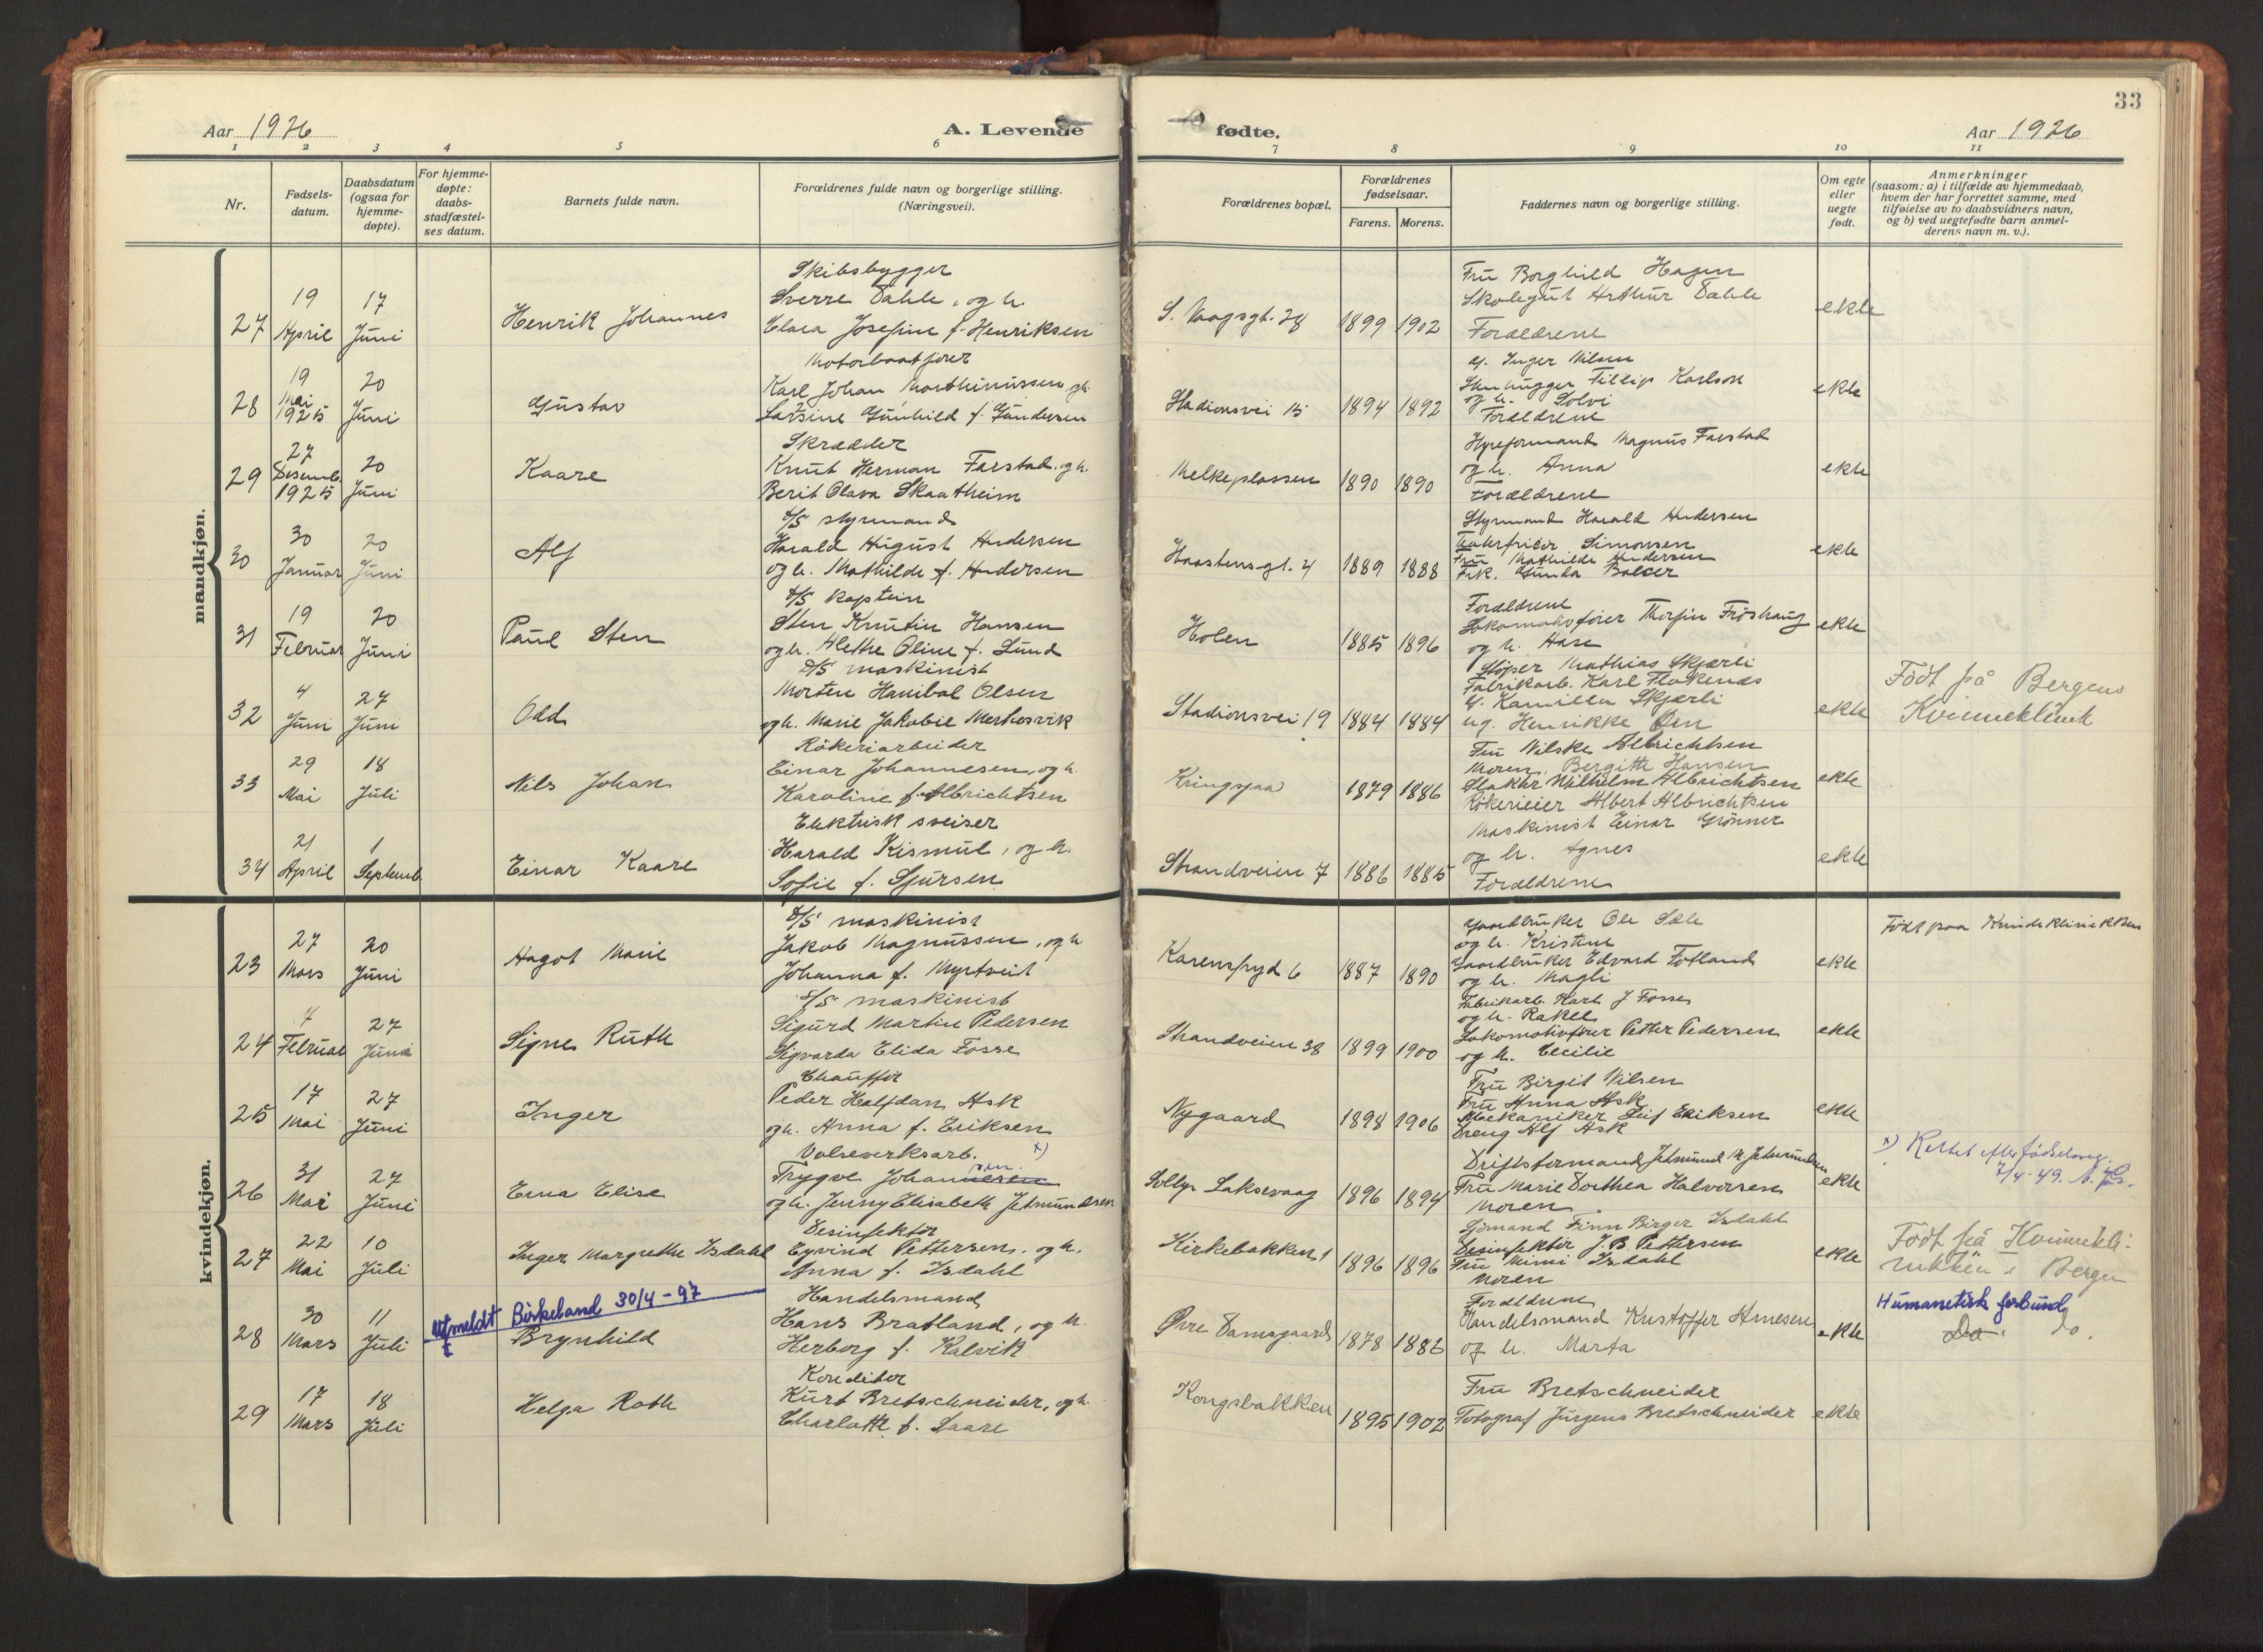 Aar 1926
A. Levende
1 2 3 4 5 6
Nr.
Fødsels-
datum.
Daabsdatum
(ogsaa for
hjemme-
døpte).
For hjemme-
døpte:
daabs-
stadfæstel-
ses datum.
Barnets fulde navn.
Forældrenes fulde navn og borgerlige stilling.
(Næringsvei).
mandkjøn.
27
19
April
17
Juni
Henrik Johannes
Skibsbygger
Sverre Dahle, og h.
Clara Josefine f. Henriksen
28
19
Mai
1925
20
Juni
Gustav
Motorbaatfører
Karl Johan Marthinussen, og h.
Larsine Gunhild f. Gundersen
29
27
Desemb.
1925
20
Juni
Kaare
Skrædder
Knut Herman Farstad. og h.
Berit Olava Skaatheim
30
30
Januar
20
Juni
Alf
D/S styrmand
Harald August Andersen
og h. Mathilde f. Andersen
31
19
Februar
20
Juni
Paul Sten
D/S kaptein
Sten Knutin Hansen
og h. Alethe Oline f. Lund
32
4
Juni
27
Juni
Odd
D/S maskinist
Morten Hanibal Olsen
og h. Marie Jakobie
33
29
Mai
18
Juli
Nils Johan
Rökeriarbeider
Einar Johannesen, og h.
Karoline f. Albrichtsen
34
21
April
1
Septemb.
Einar Kaare
Elektrisk sveiser
Harald Kismul, og h.
Sofie f. Sjursen
kvindekjøn.
23
27
Mars
20
Juni
Aagot Marie
D/S maskinist
Jakob Magnussen, og h
Johanna f. Myrtveit
24
7
Februar
27
Juni
Signe Ruth
D/S maskinist
Sigurd Martin Pedersen
Sigvarda Elida Fosse
25
17
Mai
27
Juni
Inger
Chauffør
Peder Halfdan Ask
og h. Anna f. Eriksen
26
31
Mai
27
Juni
Erna Elise
Valseverksarb. x)
Trygve Johannesen
og h. Jenny Elisabeth Jetmundsen
27
22
Mai
10
Juli
Inger Margrethe Isdahl
Desinfektör
Eyvind Pettersen. og h.
Anna f. Isdahl
utmeldt Birkeland 30/4-97
28
30
Mars
11
Juli
Brynhild
Handelsmand
Hans Bratland, og h.
Herborg f. Kalvik
29
17
Mars
18
Juli
Helga Roth
Konditor
Kurt Bretschneider, og h.
Charlotte f. Saare
33
fødte.
Aar 1926
7 8 9 10 11
Forældrenes bopæl.
Forældrenes
fødselsaar.
Farens. Morens.
Faddernes navn og borgerlige stilling.
Om egte
eller
uegte
født.
Anmerkninger
(saasom: a) i tilfælde av hjemmedaab,
hvem der har forrettet samme, med
tilføielse av to daabsvidners navn,
og b) ved uegtefødte barn anmel-
derens navn m. v.).
S. Vaagsgt. 28
1899 1902
Fru Borghild Hagen
Skolegut Arthur Dahle
Forældrene
ekte
Stadionsvei 15
1894 1892
Inger Nilsen
Stenhugger Fillip Karlson
og h. Solvi
Forældrene
ekte
Melkeplassen
1890 1890
Hyreformand Magnus Farstad
og h. Anna
Forældrene
ekte
Haastensgt. 4
1889 1888
Styrmand Harald Andersen
Simonsen
Fru Mathilde Andersen
Frk. Gunda Balcer
ekte
Holen
1885 1896
Forældrene
Lokomotivfører Thorfin Fröshaug
og h. Aase
ekte
Stadionsvei 19
1884 1884
Støper Mathias Skjærli
Fabrikarb. Karl Flokenes
h. Kamilla Skjærli
ug. Henrikke Øen
ekte
Födt på Bergens
Kvinneklinik
Kringsjaa
1879 1886
Fru Nilske Albrichtsen
Moren, Bergitte Hansen
Slakter Wilhelm Albrichtsen
Rökerieier Albert Albrichtsen
ekte
Strandveien 7
1886 1885
Maskinist Einar Grönner
og h. Agnes
Forældrene
ekte
Karensfryd 6
1887 1890
Gaardbruker Ole Sæle
og h. Kristine
Gaardbruker Edvard Fotland
og h. Magli
ekte
Födt paa Kvindeklinikken
Strandveien 38
1899 1900
Fabrikarb. Karl J Fosse
og h. Rakel
Lokomotivfører Petter Pedersen
og h. Cecilie
ekte
Nygaard
1898 1906
Fru Birgit Nilsen
Fru Anna Ask
Mekaniker Leif Eriksen
Dreng Alf Ask
ekte
Solly, Laksevaag
1896 1894
Driftsformand Jetmund M Jetmundsen
Fru Marie Dorthea Halvorsen
Moren
ekte
x) Rettet efter fødselsreg.
7/4-49.
Kirkebakken 1
1896 1896
Sjømand Finn Birger Isdahl
Desinfektör J. B. Pettersen
Fru Mimi Isdahl
Moren
ekte
Födt på Kvinnekli-
nikken i Bergen
Øvre Damsgaard
1878 1886
Forældrene
Handelsmand Kristoffer Arnesen
og h. Marta
ekte
Humanetisk forbund
Do. do.
Kongsbakken
1895 1902
Fru Bretschneider
Fotograf Jürgens Bretschneider
ekte